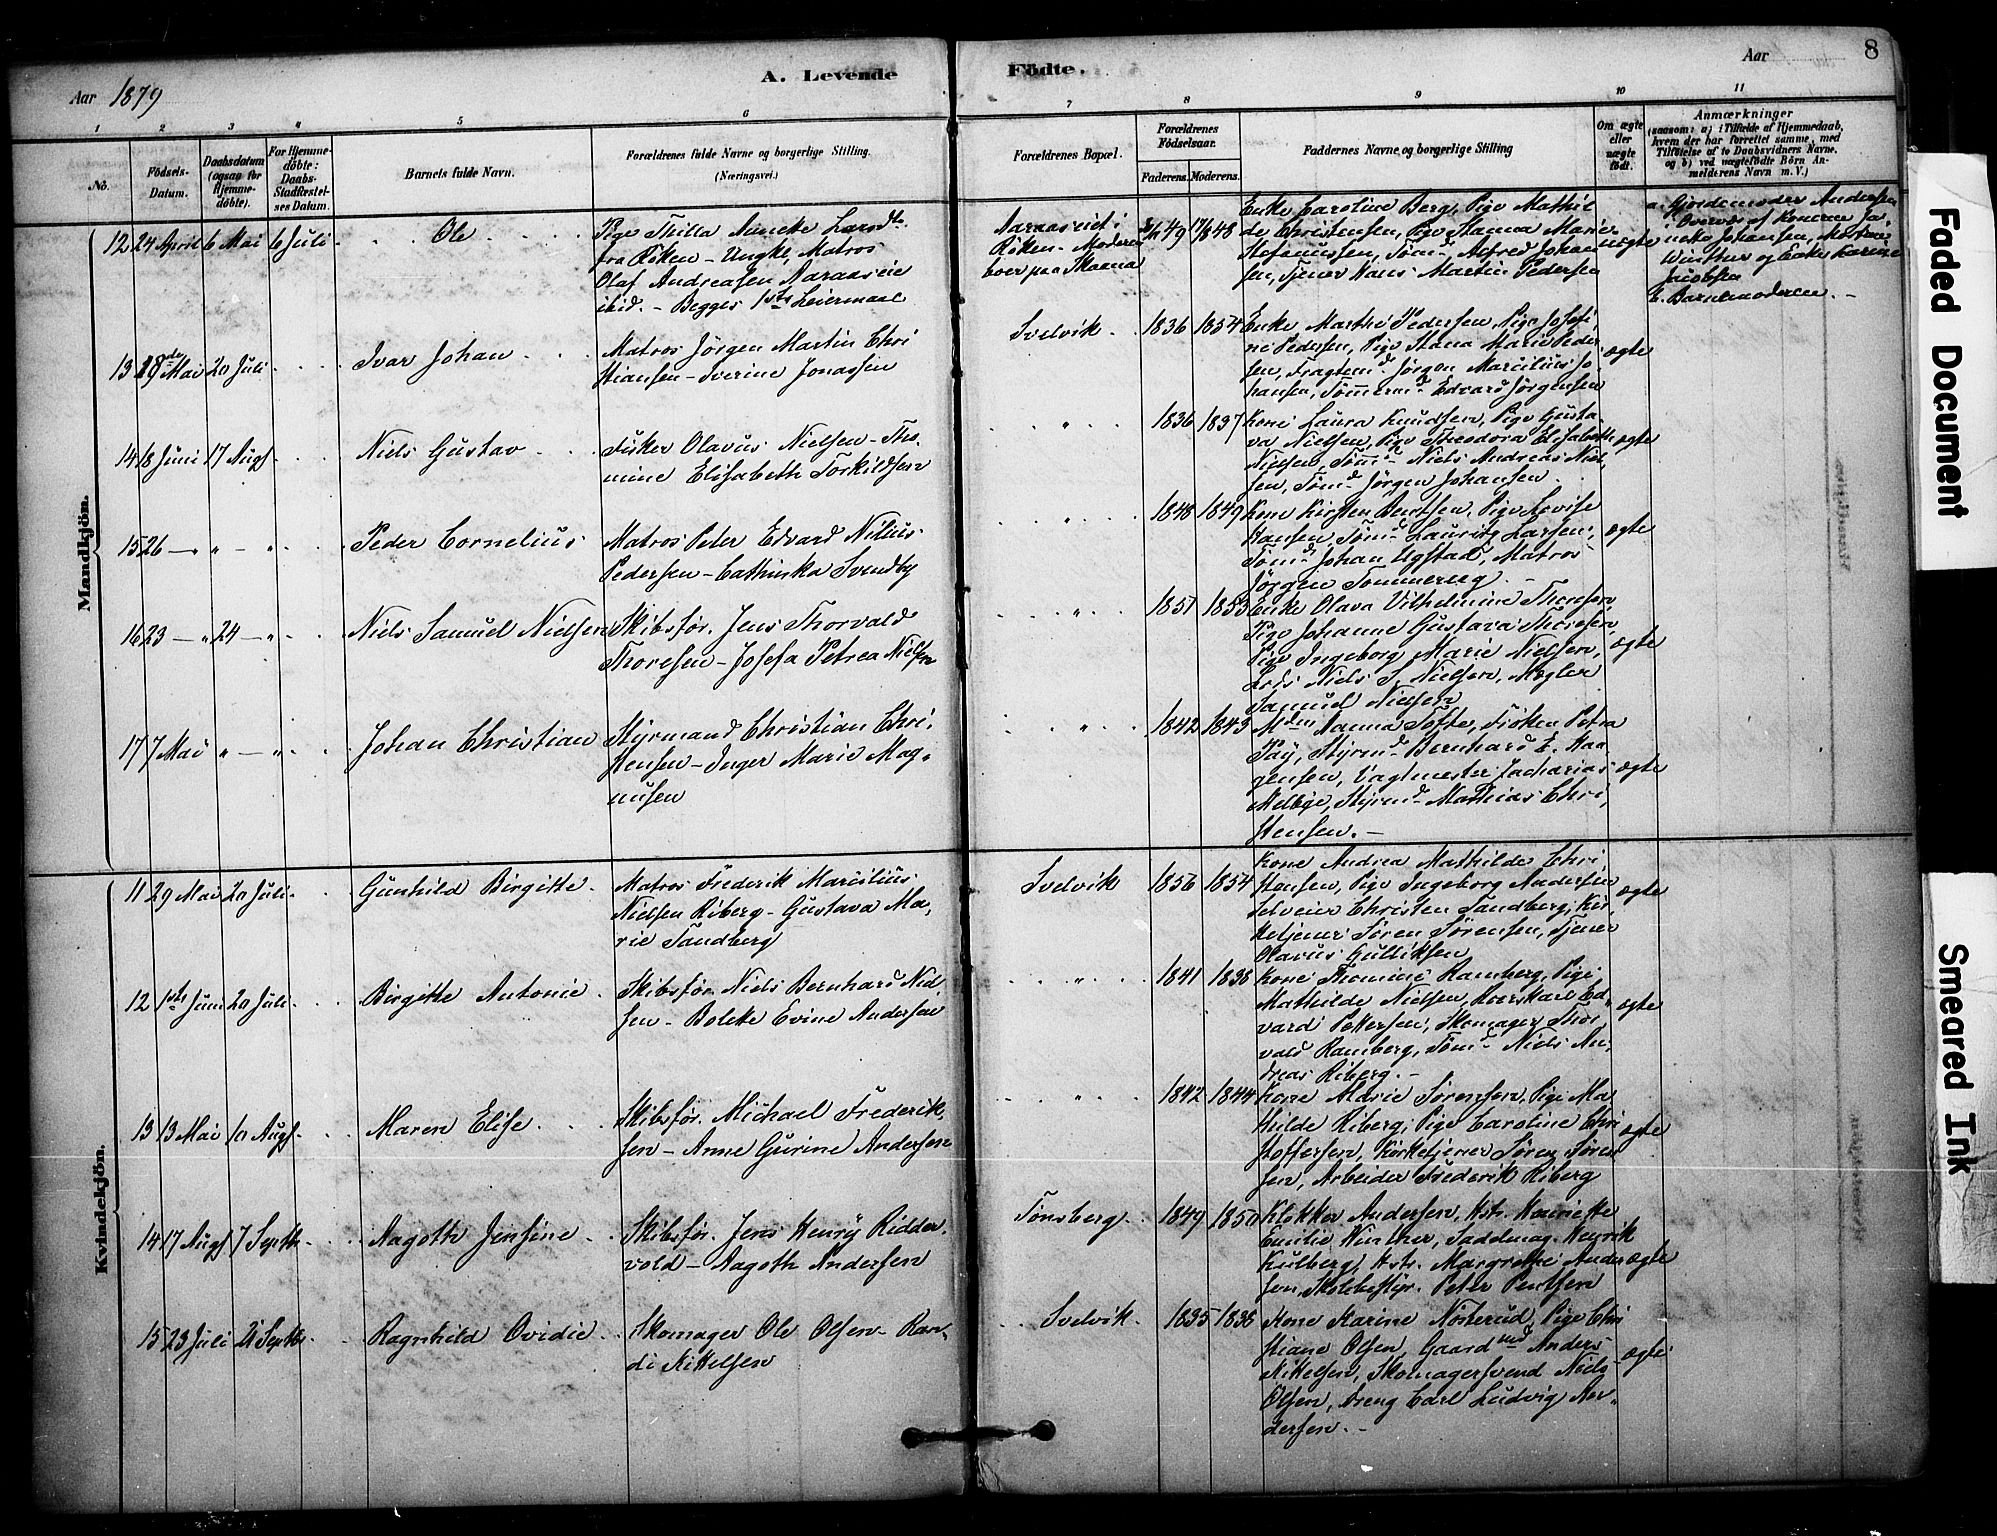 A. Levende Födte.
Aar 1879
Aar
8
1 2 3 4 5 6 7 8 9 10 11
No.
Födsels-Datum.
Daabsdatum (ogsaa for Hjemme-döbte).
For Hjemme-döbte: Daabs-Stadfæstel-ses Datum.
Barnets fulde Navn.
Forældrenes fulde Navne og borgerlige Stilling. (Næringsvei.)
Forældrenes Bopæl.
Forældrenes Födselsaar.
Faderens. Moderens.
Faddernes Navne og borgerlige Stilling
Om ægte eller uægte födt.
Anmærkninger
(saasom: a) i Tilfælde af Hjemmedaab,
hvem der har forrettet samme, med
Tilföielse af to Daabsvidners Navne,
og b) ved uægtefödte Börn An-
melderens Navn m. V.)
Mandkjön.
12 24 April 6 Mai 6 Juli
Ole
Pige Thilla Annette Larsdtr
fra Röken - Ungk. Matros
Olaf Andreasen Aaraaseie
ibid. - Begges 1ste Leiermaal
Aaraaseiet i
Röken - Moderen
boer paa Skaana
49 48
Enke Caroline Berg, Pige Mathil
de Christensen, Pige Hanna Marie
Stefanussen, Tömd Alfred Johan
sen, Tjener Hans Martin Pedersen
uægte
a. Gjordemoder Andersen
Overvær af Konerne Ja
Johansen,
Winther og Enke Karine
Jacobsen
b. Barnemoderen. -
13 18de Mai 20 Juli
Ivar Johan
Matros Jörgen Martin Chri
stiansen - Iverine Jonassen
Svelvik
1836 1837
Enke Marthe Pedersen, Pige Josefi
ne Pedersen, Pige Hana Marie Peder
sen, Fragtemd Jörgen Marcilius Jo
hansen, Tömmermd Edvard Jörgensen
ægte
14 18 Juni 17 Augs
Niels Gustav
Fisker Olavus Nielsen - Tho
mine Elisabeth Torkildsen
"
1836 1837
Kone Laura Knudsen, Pige Gusta
va Nielsen, Pige Theodora Elisabeth
Nielsen, Tömd Niels Andreas Niel
sen, Tömd Jörgen Johansen.
ægte
15 26 - " " - "
Peder Cornelius
Matros Peter Edvard Nilius
Pedersen - Cathinka Svendby
"
1848 1849
Kone Kirsten Berntsen, Pige Lovise
Hansen, Tömd Lauritz Larsen,
Tömd Johan Ugstad, Matros
Jörgen Tommeraeg. -
ægte
16 23 - " 24 - "
Niels Samuel Nielsen
Skibsför. Jens Thorvald
Thoresen - Josefa Petrea Nielsen
"
1851 1853
Enke Olava Vilhelmine Thoresen
Pige Johanne Gustava Thoresen
Pige Ingeborg Marie Nielsen,
Lods Niels S. Nielsen, Mægler
Samuel Nielsen
ægte
17 7 Mai " - "
Johan Christian
Styrmand Christian Chri
stensen - Inger Marie Mag-
nusen
"
1842 1843
Mdm Nanna Tofte, Fröken Petra
Pay, Styrmd Bernhard E. Haa
gensen, Vagtmester Zacharias
Melbye, Styrmd Mathias Chri
stensen. -
ægte
Kvindekjön.
11 29 Mai 20 Juli
Gunhild Birgitte
Matros Frederik Marcilius
Nielsen Riberg - Gustava Ma
rie Sandberg
Svelvik
1856 1854
Kone Andrea Mathilde Chri
stensen, Pige Ingeborg Andersen
Selveier Christen Sandberg, Kir
ketjener Sören Sörensen, Tjener
Olavus Gulliksen
ægte
12 1ste Juni 20 Juli
Birgitte Antonie
Skibsför. Niels Bernhard Niel
sen - Bolette Evine Andersen
"
1841 1838
Kone Thomine Ramberg, Pige
Mathilde Nielsen, Roerskarl Ed
vard Pettersen, Skomager Thor
vald Ramberg, Tömd Niels An
dreas Riberg. -
ægte
13 13 Mai 10 Augs
Maren Elise
Skibsför. Michael Frederik
sen - Anne Gurine Andersen
"
1842 1844
Kone Marie Sörensen, Pige Ma
thilde Riberg, Pige Caroline Chri
stoffersen, Kirketjener Sören Sören
sen, Arbeider Frederik Riberg
ægte
14 17 Augs 7 Septb.
Aagoth Jensine
Skibsför. Jens Henry Ridder
vold - Aagoth Andersen
Tönsberg
1849 1850
Klokker Andersen, Hstr. Henriette
Emilie Winther, Sadelmag. Henrik
Kulberg, Hstr. Margrethe Ander
sen, Skolebestyr. Peter Pentsen
ægte
15 23 Juli 21 Septb.
Ragnhild Ovidie
Skomager Ole Olsen - Ran
di Kittelsen
Svelvik
1835 1838
Kone Karine Nösterud, Pige Chri
stiane Olsen, Gaardmd Anders
Kittelsen, Skomagersvend Niels
Olsen, Dreng Carl Ludvig An
dersen. -
ægte
Faded Document
Smeared Ink